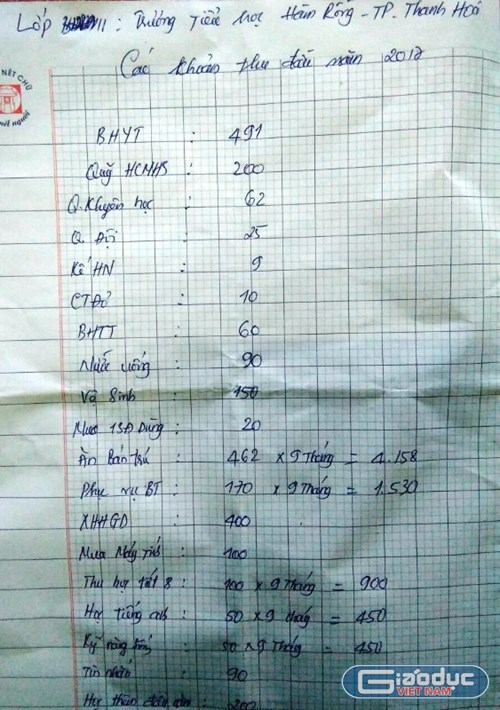 Lớp 11 : Trường Tiểu học Hàm Rồng - TP. Thanh Hoá
Các khoản thu đầu năm 2017
NÉT CHỮ
NẾT NGƯỜI
BHYT : 491
Quỹ HCMHS : 200
Q. Khuyến học : 62
Q. Đội : 25
Kế HN : 9
CTĐỎ : 10
BHTT : 60
Nước uống : 90
Vệ Sinh : 150
Mua 1SĐ Dùng : 20
Ăn Bán trú : 462 x 9 Tháng = 4.158
Phục vụ BT : 170 x 9 Tháng = 1.530
XHHGD : 400
Mua Máy : 100
Thu học 8 : 100 x 9 Tháng = 900
Học tiếng anh : 50 x 9 tháng = 450
Kỹ năng sống : 50 x 9 Tháng = 450
Tin nhắn : 90
Học thêm đầu năm : 200
Giáo dục
VIỆT NAM